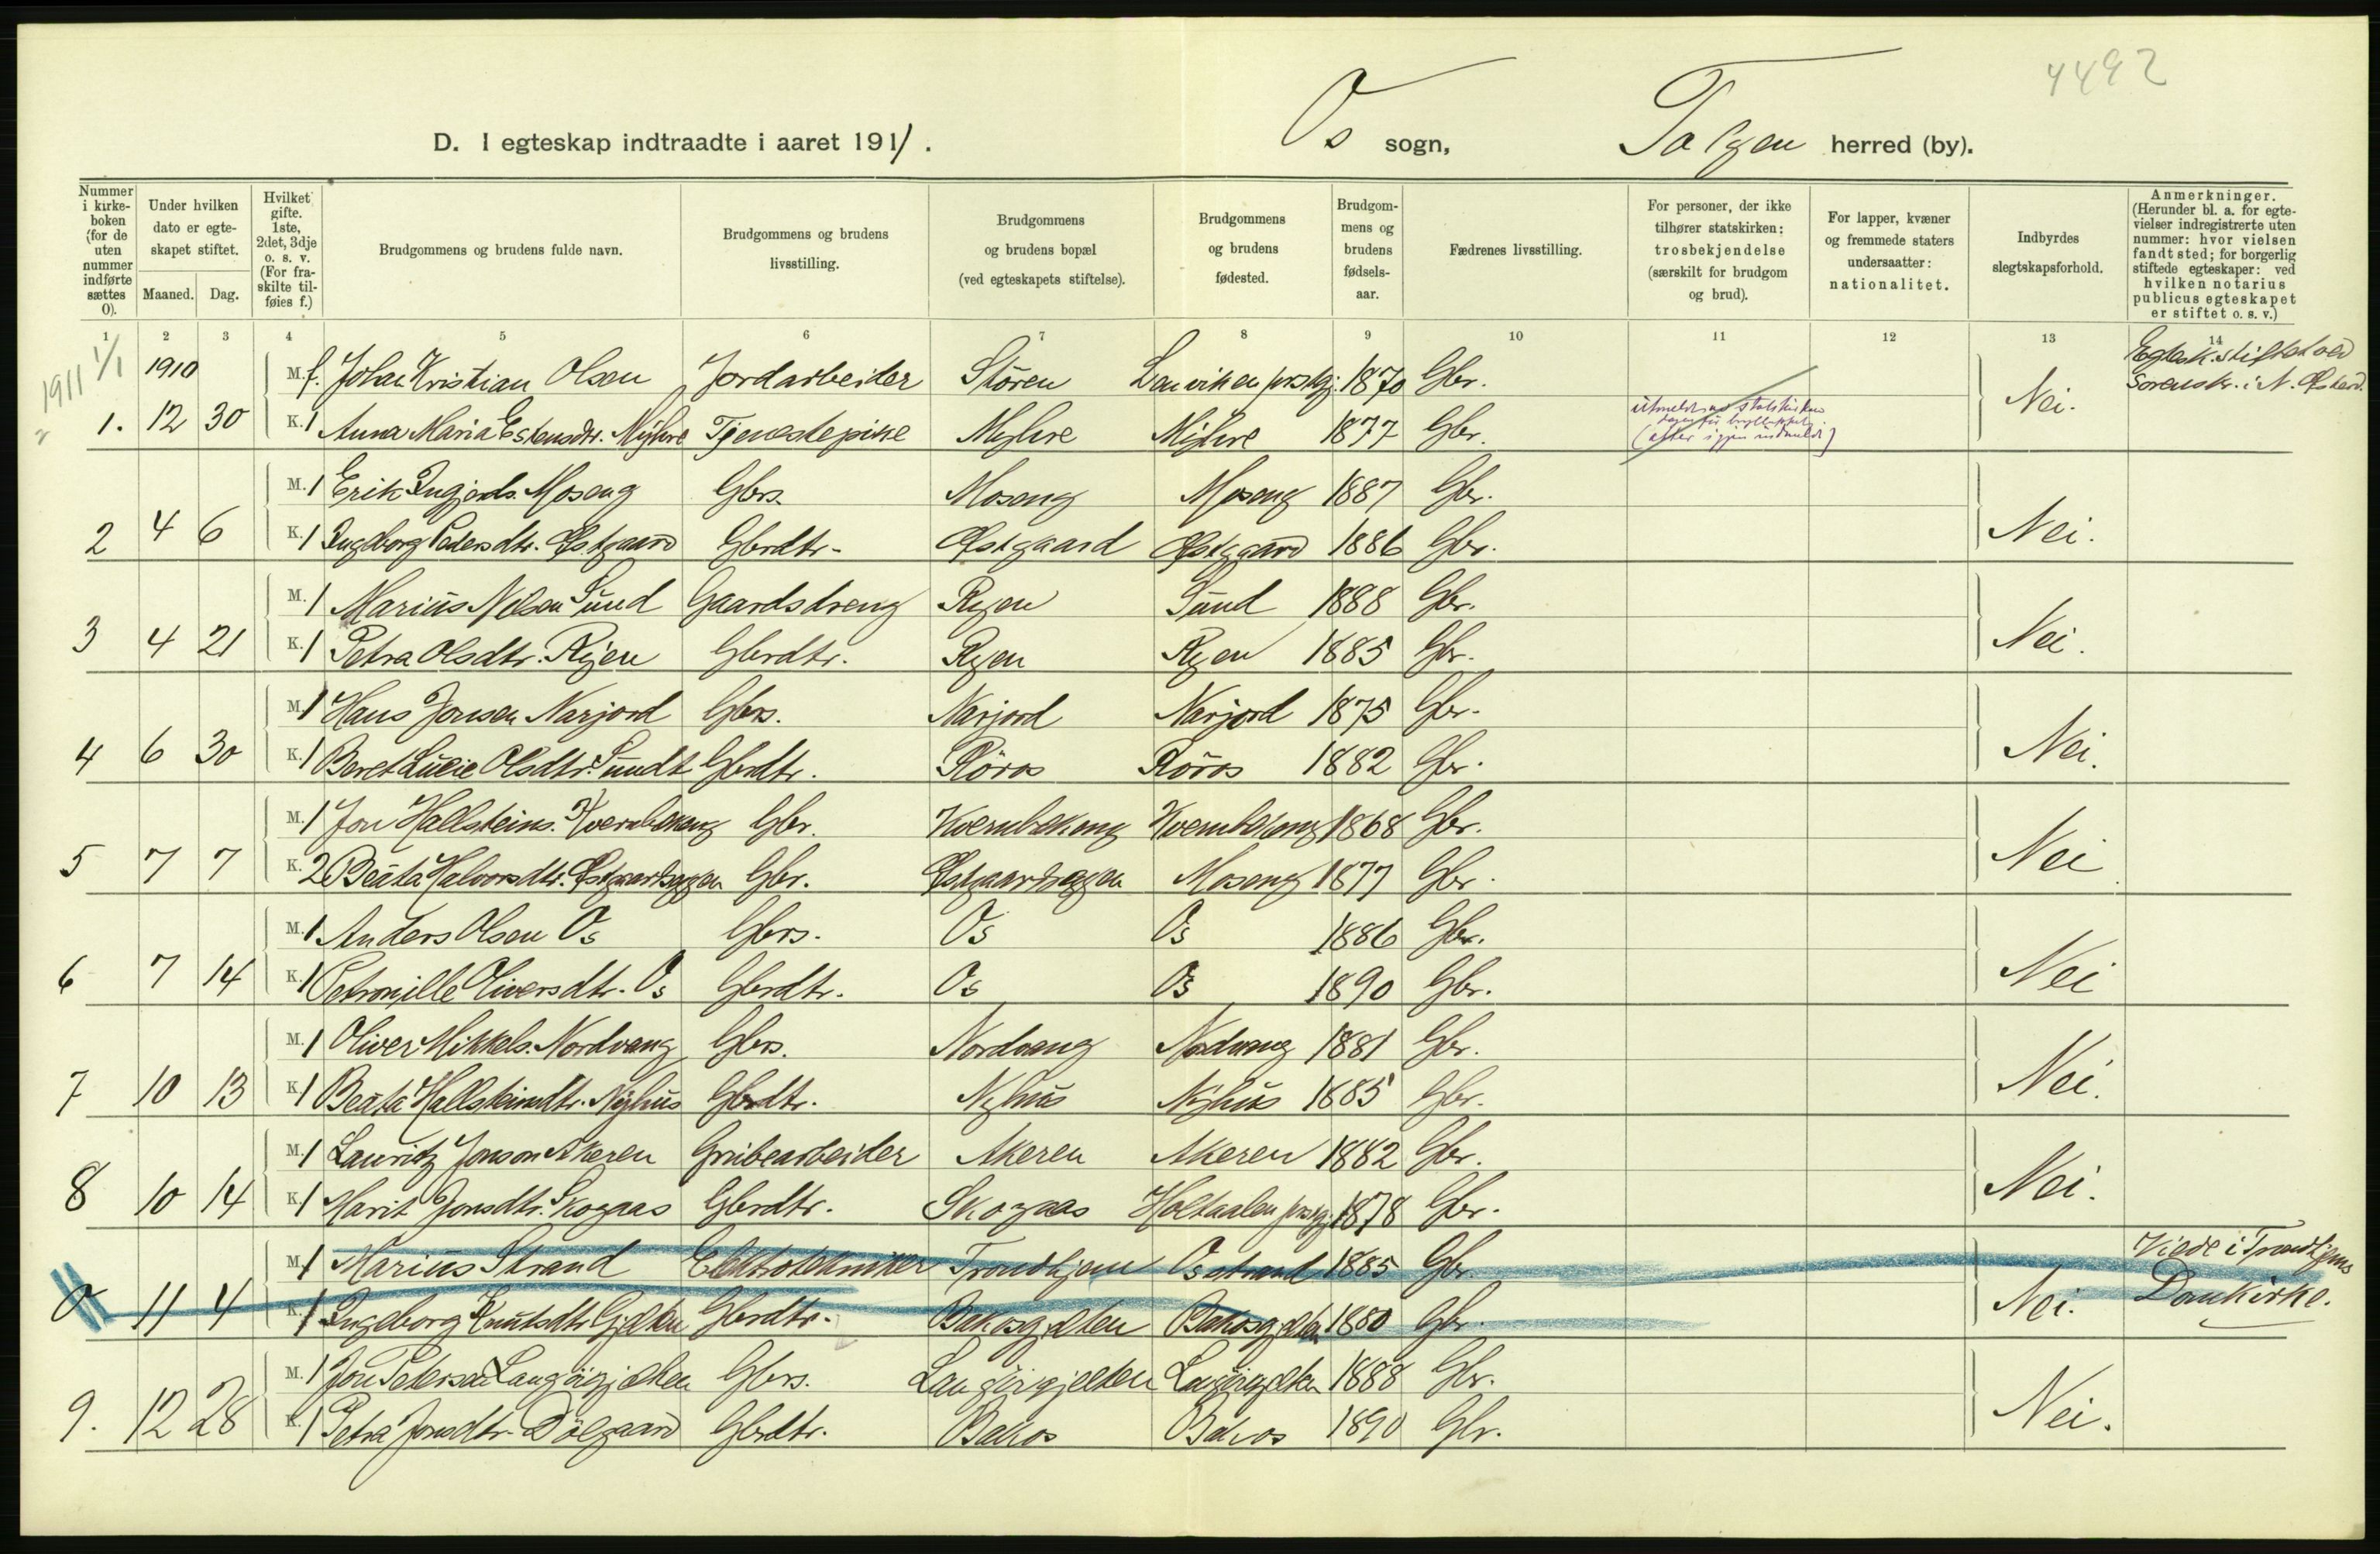 4492
D. I egteskap indtraadte i aaret 1911. Os sogn, Tolgen herred (by).
Nummer i kirkeboken (for de uten nummer indførte sættes 0).
Under hvilken dato er egteskapet stiftet.
Maaned. Dag.
Hvilket gifte. 1ste, 2det, 3dje o. s. v. (For fraskilte tilføies f.)
Brudgommens og brudens fulde navn.
Brudgommens og brudens livsstilling.
Brudgommens og brudens bopæl (ved egteskapets stiftelse).
Brudgommens og brudens fødested.
Brudgommens og brudens fødselsaar.
Fædrenes livsstilling.
For personer, der ikke tilhører statskirken: trosbekjendelse (særskilt for brudgom og brud).
For lapper, kvæner og fremmede staters undersaatter: nationalitet.
Indbyrdes slegtskapsforhold.
Anmerkninger. (Herunder bl. a. for egtevielser indregistrerte uten nummer: hvor vielsen fandt sted; for borgerlig stiftede egteskaper: ved hvilken notarius publicus egteskapet er stiftet o. s. v.)
1 2 3 4 5 6 7 8 9 10 11 12 13 14
1911 1/1 1910 M. f. Johan Kristian Olsen Jordarbeider Stören prstgj. 1870 Gbr. Egtesk. stiftet ved
Sorenskr. i N. Østerd.
1. 12 30 K. 1 Anna Maria Estensdtr. Myhre Tjenestepike Myhre Myhre 1877 Gbr. Nei.
utmeldt av statskirken
(efter igjen indmeldt)
M. 1 Erik Ingjerds. Moseng Gbrs. Moseng Moseng 1887 Gbr.
2 4 6 K. 1 Ingeborg Pedersdtr. Østgaard Gbrdtr. Østgaard Østgaard 1886 Gbr. Nei.
M. 1 Marius Nilsen Sund Gaardsdreng Ryen Sund 1888 Gbr.
3 4 21 K. 1 Petra Olsdtr. Ryen Gbrdtr. Ryen Ryen 1885 Gbr. Nei.
M. 1 Hans Jonsen Narjord Gbrs. Narjord Narjord 1875 Gbr.
4 6 30 K. 1 Beret Lucie Olsdtr. Sundt Gbrdtr. Röros Röros 1882 Gbr. Nei.
M. 1 Jon Hallsteins. Kvernbekeng Gbr. Kvernbekeng Kvernbekeng 1868 Gbr.
5 7 7 K. 2 Beata Halvorsdtr. Østgaardseggen Gbr. Østgaardseggen Moseng 1877 Gbr. Nei
M. 1 Anders Olsen Os Gbrs. Os Os 1886 Gbr.
6 7 14 K. 1 Petronille Oliversdtr. Os Gbrdtr. Os Os 1890 Gbr. Nei
M. 1 Oliver Mikkels. Nordvang Gbrs. Nordvang Nordvang 1881 Gbr.
7 10 13 K. 1 Beata Hallsteinsdtr. Nyhus Gbrdtr. Nyhus Nyhus 1885 Gbr. Nei.
M. 1 Lauritz Jonson Akeren Grubearbeider Akeren Akeren 1882 Gbr.
8 10 14 K. 1 Marit Jonsdtr. Skogaas Gbrdtr. Skogaas Holtaalen prstgj. 1878 Gbr. Nei.
M. 1 Marius Strand Elektrotekniker Trondhjem Osstrand 1885 Gbr. Viede i Trondhjems
0 11 4 K. 1 Ingeborg Knutsdtr. Gjelten Gbrdtr. Bakosgjelten Bakosgjelten 1880 Gbr. Nei. Domkirke.
M. 1 Jon Petersen Langöigjelten Gbrs. Langöigjelten Langöigjelten 1888 Gbr.
9. 12 28 K. 1 Petra Jonsdtr. Dölgaard Gbrdtr. Bakos Bakos 1890 Gbr. Nei.